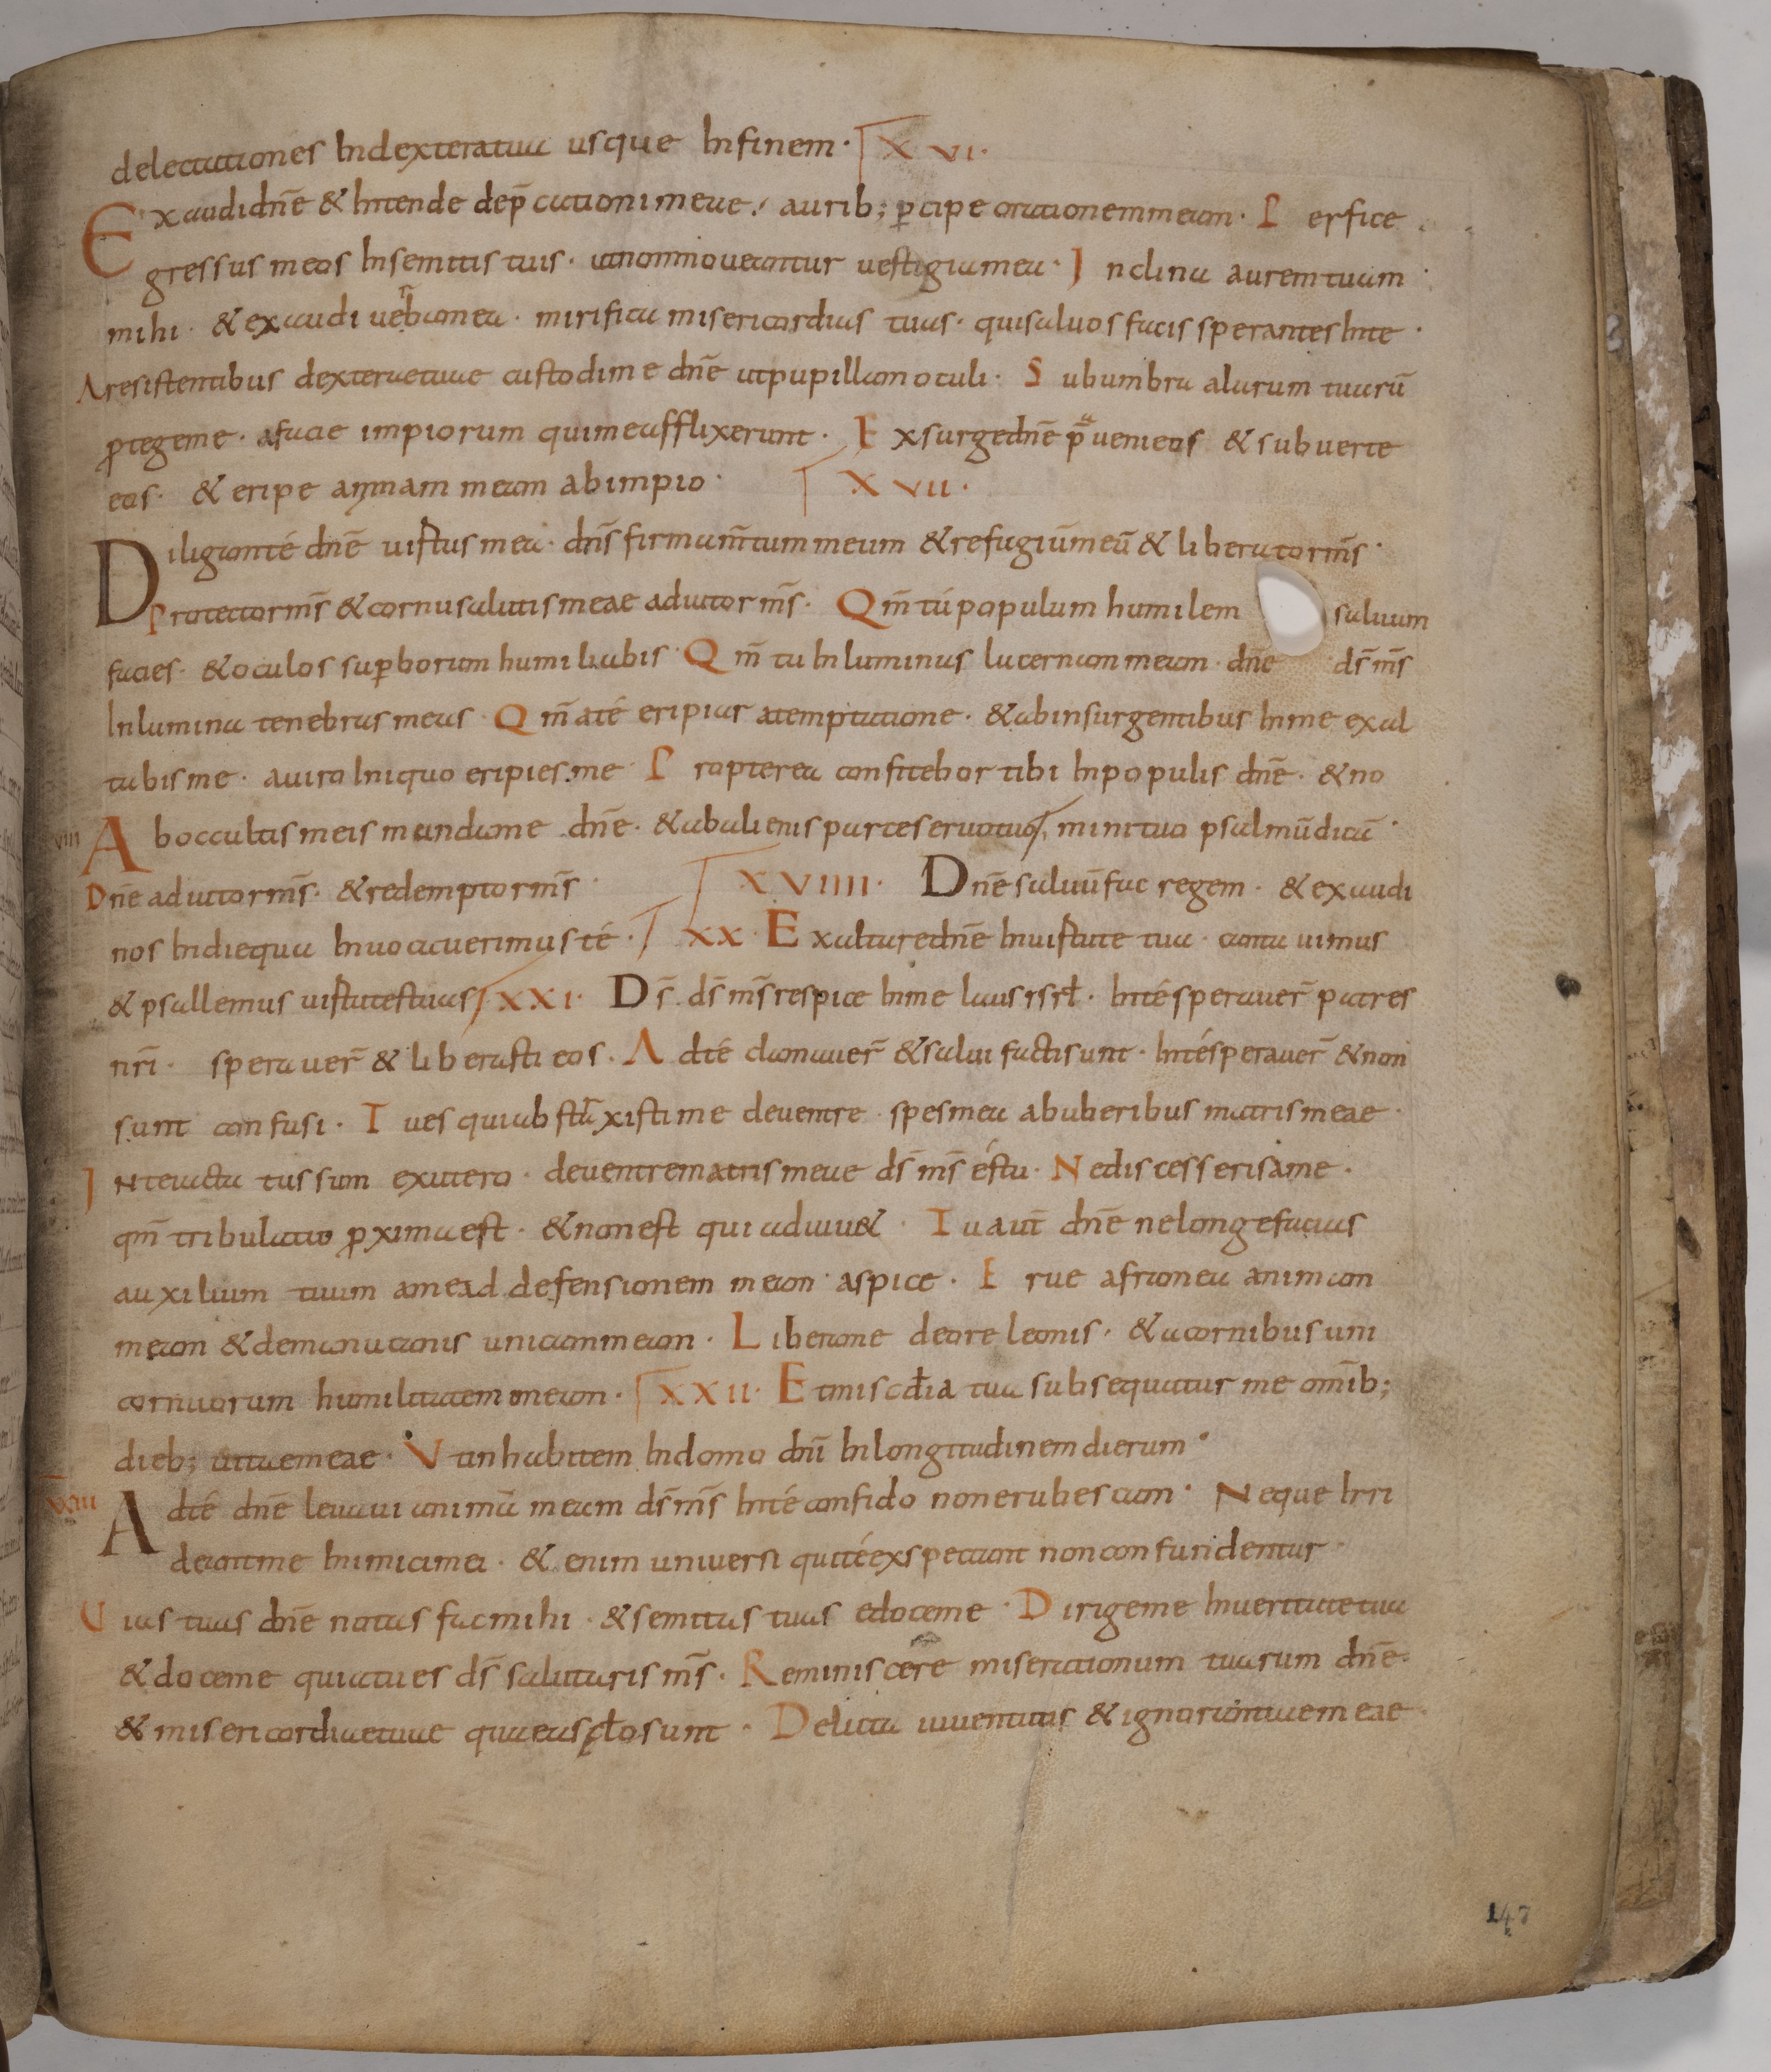 delectationes Indextera tua usque Infinem · XVI ·
Exaudi dñe & Intende dep̄cationi meae · aurib; ꝑcipe orationem meam · Perfice
gressus meos Insemitis tuis · ut non moveantur vestigia mea · Inclina aurem tuam
mihi · & exaudi verba mea · mirifica misericordias tuas · qui salvos facis sperantes Inte ·
A resistentibus dexterae tuae custodi me dñe ut pupillam oculi · Sub umbra alarum tuarū
ꝓtege me · a facie impiorum qui me afflixerunt · Exsurge dñe p̄ueni eos & subverte
eos · & eripe animam meam ab impio · XVII ·
Diligam té dñe virtus mea · dñs firmam̄tum meum & refugiū meū & liberator m̄s ·
Protector m̄s & cornu salutis meae adiutor m̄s · Qm̄ tú populum humilem salvum
facies · & oculos suꝑborum humiliabis · Qm̄ tu Inluminas lucernam meam dñe d̄s m̄s
Inlumina tenebras meas · Qm̄ a té eripiar a temptatione · & ab insurgentibus Inme exal
tabis me · a viro Iniquo eripies me · Propterea confitebor tibi Inpopulis dñe · & no
viiii Ab occultis meis munda me dñe · & ab alienis parce servo tuo / mini tuo psalmū dicā ·
Dñe adiutor m̄s · & redemptor m̄s · XVIIII · Dñe salvū fac regem · & exaudi
nos Indie qua Invocaverimus té · XX · Exaltare dñe Invirtute tua · cantavimus
& psallemus virtutes tuas XXI · D̄s d̄s m̄s respice Inme laus isrł · Inté speraver̄ patres
nr̄i · speraver̄ & liberasti eos · Ad té clamaver̄ & salvi facti sunt · Inté speraver̄ & non
sunt confusi · Tu es qui abstraxisti me de ventre · spes mea ab uberibus matris meae ·
In te iactatus sum ex utero · de ventre matris meae d̄s m̄s és tu · Ne discesseris a me ·
qm̄ tribulatio ꝓxima est · & non est qui adiuv& · Tu aut̄ dñe ne longe facias
auxilium tuum a me ad defensionem meam aspice · Erue a framea animam
meam & de manu canis unicam meam · Libera me de ore leonis · & a cornibus uni
cornuorum humilitatem meam · XXII · Et misc̄dia tua subsequatur me omīb;
dieb; vitae meae · Ut inhabitem Indomo dn̄i Inlongitudinem dierum ·
xxiiii Ad té dñe levavi animā meam d̄s m̄s Inté confido non erubescam · Neque Irri
deant me Inimici mei · & enim universi qui té exspectant non confundentur ·
Vias tuas dñe notas fac mihi · & semitas tuas edoce me · Dirige me Inveritate tua
& doce me quia tu es d̄s salutaris m̄s · Reminiscere miserationum tuarum dñe ·
& misericordiae tuae quae a scło sunt · Delicta iuventutis & ignorantiae meae ·
147